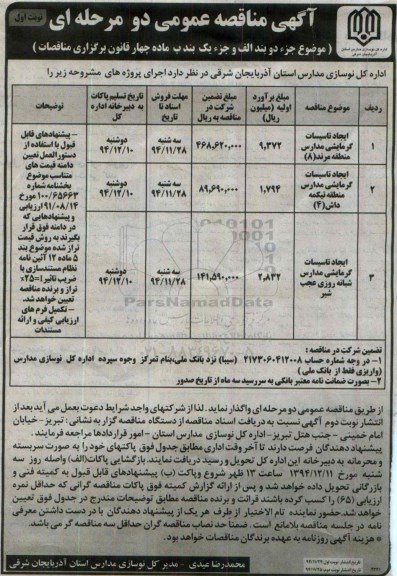 نوبت اول
آگهی مناقصه عمومی دو مرحله ای
(موضوع جزء دو بند الف و جزء یک بند ب ماده چهار قانون برگزاری مناقصات)
اداره کل نوسازی مدارس استان آذربایجان شرقی در نظر دارد اجرای پروژه های مشروحه زیر را
ردیف | موضوع مناقصه | مبلغ برآورد اولیه (میلیون ریال) | مبلغ تضمین شرکت در مناقصه به ریال | مهلت فروش اسناد تا تاریخ | تاریخ تسلیم پاکات به دبیرخانه اداره کل | توضیحات
۱ | ایجاد تاسیسات گرمایشی مدارس منطقه مرند(۸) | ۹,۳۷۲ | ۴۶۸,۶۲۰,۰۰۰ | سه شنبه ۹۴/۱۱/۲۸ | دوشنبه ۹۴/۱۲/۱۰
۲ | ایجاد تاسیسات گرمایشی مدارس منطقه تیکمه داش(۴) | ۱,۷۹۴ | ۸۹,۶۹۰,۰۰۰ | سه شنبه ۹۴/۱۱/۲۸ | دوشنبه ۹۴/۱۲/۱۰
۳ | ایجاد تاسیسات گرمایشی مدارس شبانه روزی عجب شیر | ۲,۸۳۲ | ۱۴۱,۵۹۰,۰۰۰ | سه شنبه ۹۴/۱۱/۲۸ | دوشنبه ۹۴/۱۲/۱۰
– پیشنهادهای قابل
قبول با استفاده از
دستورالعمل تعیین
دامنه قیمت های
متناسب موضوع
بخشنامه شماره
۱۰۰/۶۵۶۶۳ مورخ
۹۱/۰۸/۱۴ ارزیابی
و پیشنهادهایی که
در دامنه فوق قرار
بگیرند به روش قیمت
تراز شده موضوع بند
۵ ماده ۱۲ آئین نامه
نظام مستندسازی با
ضریب تاثیر i=۲۵٪
تراز و برنده مناقصه
تعیین خواهد شد.
– تکمیل فرم های
ارزیابی کیفی و ارائه
مستندات
ParsNamadData
تضمین شرکت در مناقصه :
۱– در وجه شماره حساب ۲۱۷۳۰۶۰۴۱۲۰۰۸ (سیبا) نزد بانک ملی،بنام تمرکز وجوه سپرده اداره کل نوسازی مدارس
(واریزی فقط از بانک ملی )
۲– بصورت ضمانت نامه معتبر بانکی به سررسید سه ماه از تاریخ صدور
از طریق مناقصه عمومی دو مرحله ای واگذار نماید. لذا از شرکتهای واجد شرایط دعوت بعمل می آید بعد از
انتشار نوبت دوم آگهی نسبت به دریافت اسناد مناقصه از دستگاه مناقصه گزار به نشانی : تبریز–خیابان
امام خمینی – جنب هتل تبریز–اداره کل نوسازی مدارس استان – امور قراردادها مراجعه فرمایند .
پیشنهاد دهندگان فرصت دارند تا آخر وقت اداری مطابق جدول فوق پاکتهای خود را به صورت سربسته
و محرمانه به دبیرخانه این اداره کل تحویل و رسید دریافت نمایند. بازگشایی پاکات(الف) واصله روز سه
شنبه مورخ ۱۳۹۴/۱۲/۱۱ ساعت ۱۳ ظهر شروع وپاکت (ب) پیشنهادهای قابل قبول به کمیته فنی و
بازرگانی تحویل داده خواهد شد و پس از ارائه گزارش کمیته فوق پاکات مناقصه گرانی که حداقل نمره
ارزیابی (۶۵) را کسب کرده باشند قرائت و برنده مناقصه مطابق توضیحات مندرج در جدول فوق تعیین
خواهد شد.حضور نماینده تام الاختیار از طرف هر یک از پیشنهاد دهندگان با در دست داشتن معرفی
نامه در جلسه مناقصه بلامانع است. ضمنا حد نصاب مناقصه گران حداقل سه مناقصه گر می باشد.
* هزینه آگهی روزنامه به عهده برندگان مناقصات خواهد بود.
محمدرضا عبدی – مدیر کل نوسازی مدارس استان آذربایجان شرقی